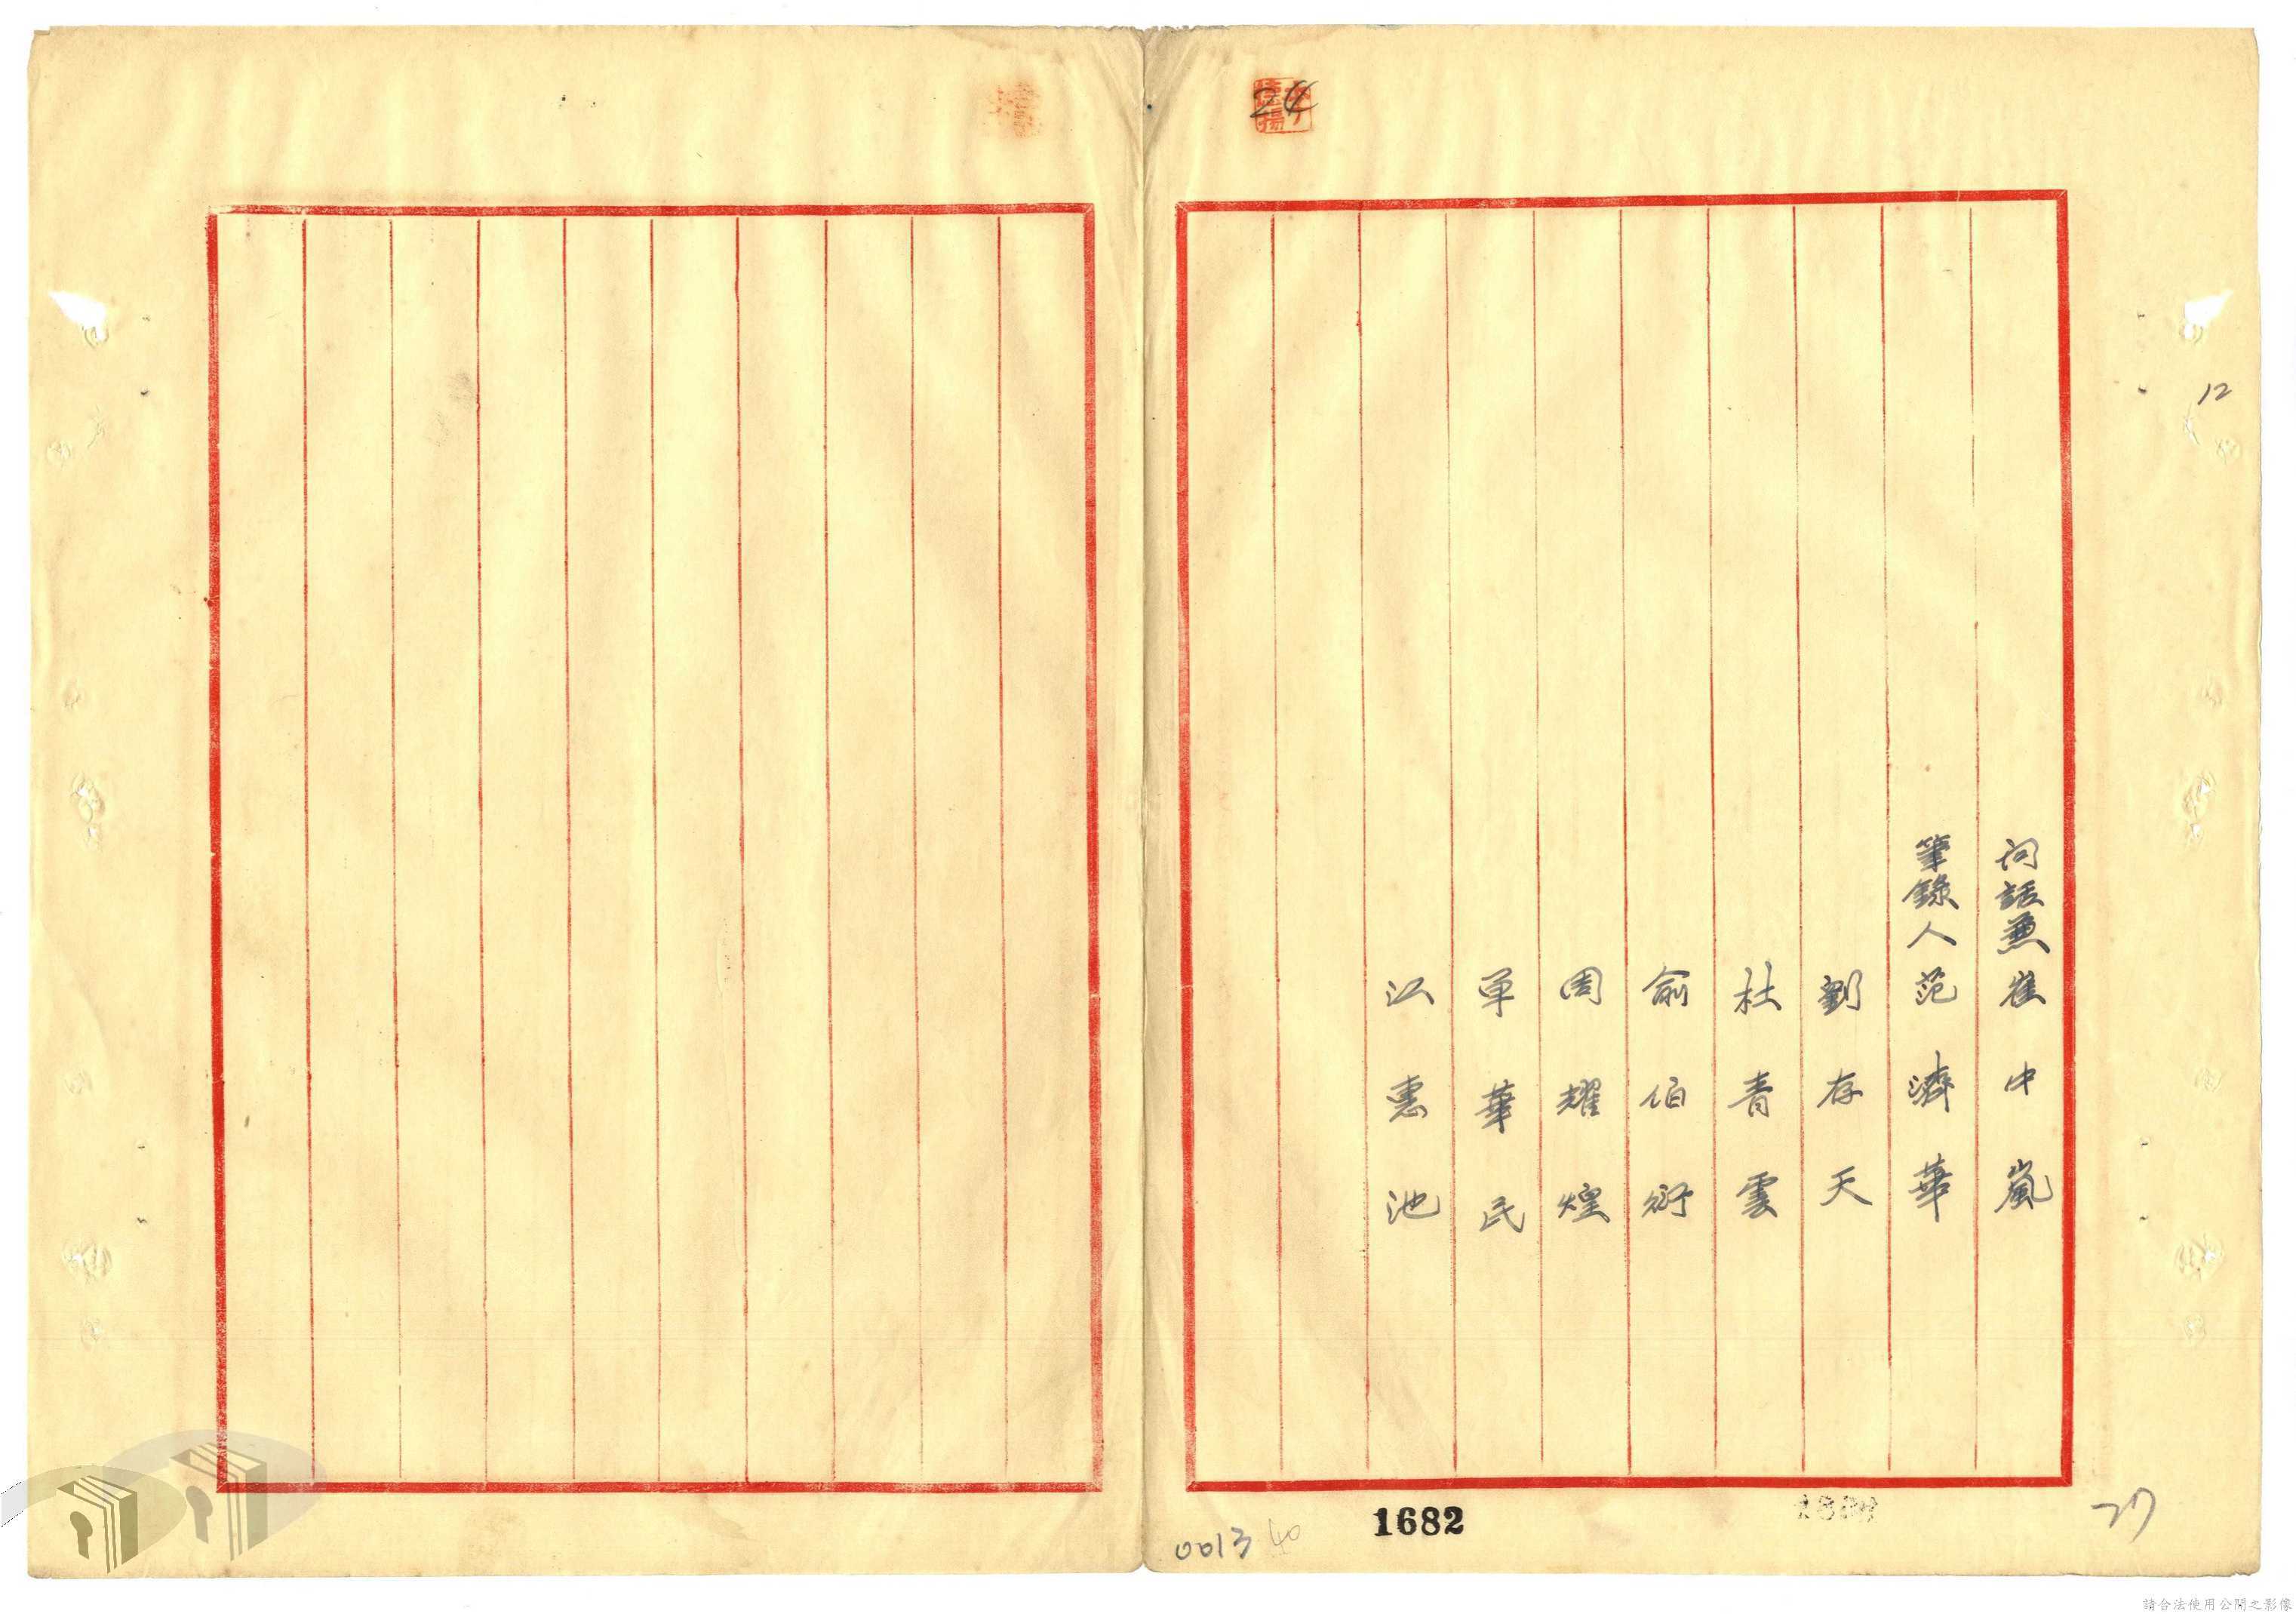 24
12
詢話兼 崔中嵐
筆錄人 范濟華
劉存天
杜青雲
俞伯衍
周耀煌
單華民
江惠池
0013
40
1682
27
請合法使用公開之影像